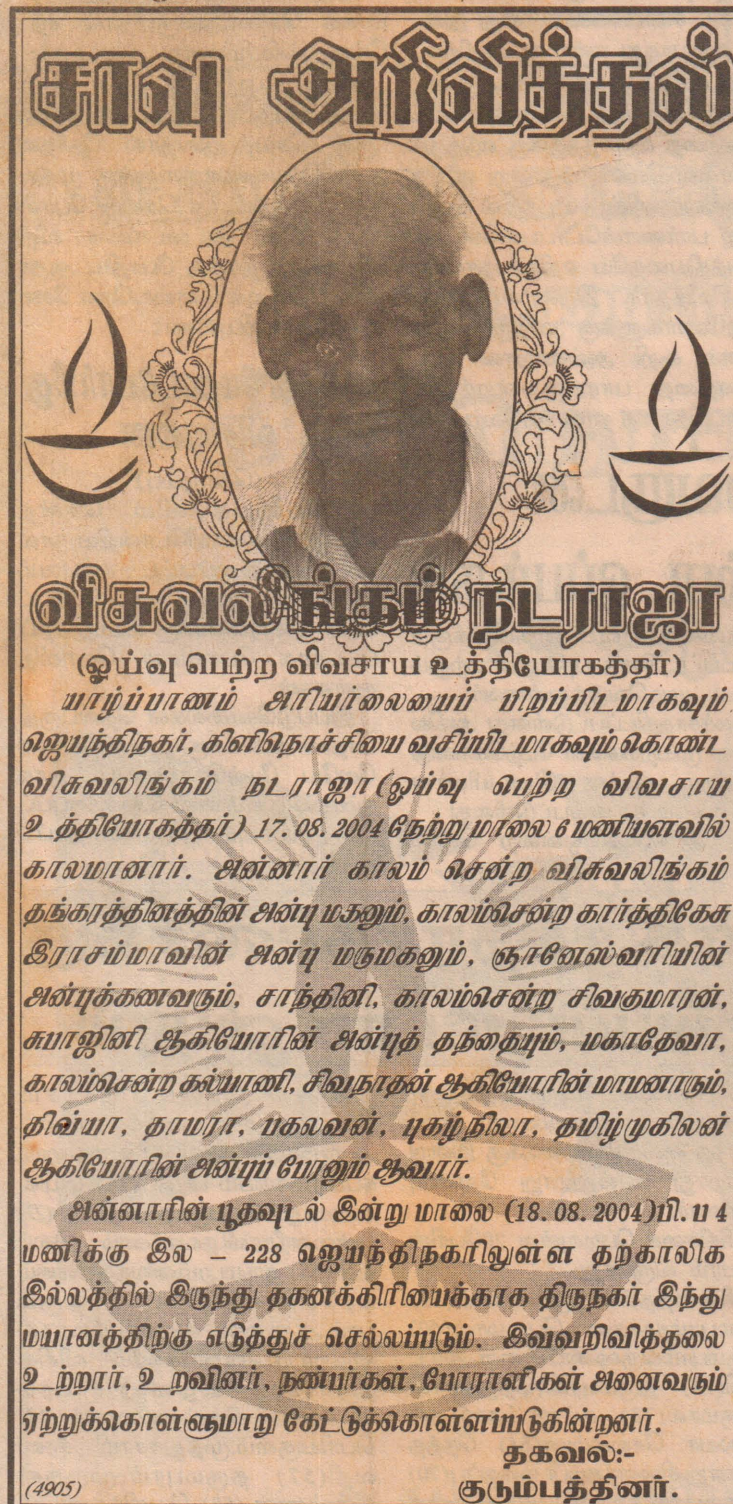 சாவு அறிவித்தல்
விசுவலிங்கம் நடராஜா
(ஓய்வு பெற்ற விவசாய உத்தியோகத்தர்)
யாழ்ப்பாணம் அரியாலையைப் பிறப்பிடமாகவும்
ஜெயந்திநகர், கிளிநொச்சியை வசிப்பிடமாகவும் கொண்ட
விசுவலிங்கம் நடராஜா (ஓய்வு பெற்ற விவசாய
உத்தியோகத்தர்) 17.08.2004 நேற்று மாலை 6 மணியளவில்
காலமானார். அன்னார் காலம் சென்ற விசுவலிங்கம்
தங்கரத்தினத்தின் அன்பு மகனும், காலம்சென்ற கார்த்திகேசு
இராசம்மாவின் அன்பு மருமகனும், ஞானேஸ்வரியின்
அன்புக்கணவரும், சாந்தினி, காலம்சென்ற சிவகுமாரன்,
சுபாஜினி ஆகியோரின் அன்புத் தந்தையும், மகாதேவா,
காலம்சென்ற கல்யாணி, சிவநாதன் ஆகியோரின் மாமனாரும்,
திவ்யா, தாமரா, பகலவன், புகழ்நிலா, தமிழ்முகிலன்
ஆகியோரின் அன்புப் பேரனும் ஆவார்.
அன்னாரின் பூதவுடல் இன்று மாலை (18.08.2004) பி.ப 4
மணிக்கு இல – 228 ஜெயந்திநகரிலுள்ள தற்காலிக
இல்லத்தில் இருந்து தகனக்கிரியைக்காக திருநகர் இந்து
மயானத்திற்கு எடுத்துச் செல்லப்படும். இவ்வறிவித்தலை
உற்றார், உறவினர், நண்பர்கள், போராளிகள் அனைவரும்
ஏற்றுக்கொள்ளுமாறு கேட்டுக்கொள்ளப்படுகின்றனர்.
தகவல்:-
குடும்பத்தினர்.
(4905)